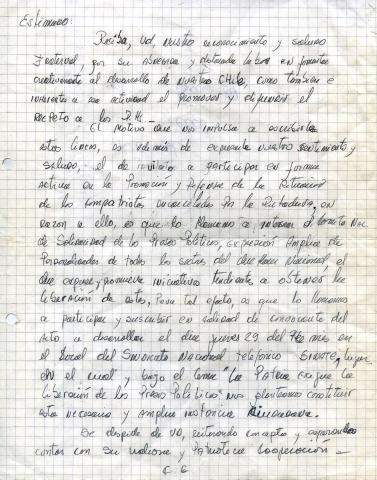 Estimado:
Reciba, Ud, Nuestro reconocimiento y saludo
fraternal, por su abnegada y destacada labor en fomentar
creativamente al desarrollo de Nuestro Chile, como tambien e
inherente a su actividad el promover y defender el
Respeto a los D.H. -
El Motivo que nos impulsa a escribirle
estas lineas, es además de expresarle nuestro sentimiento y
saludo, el de invitarlo a participar en forma
Activa en la Promocion y Defensa de la Situación
de los compatriotas encarcelados por la Dictadura, en
razon a ello, es que lo llamamos a integrar el Comite Nac.
de Solidaridad de los Presos Politicos, expresión Amplia de
Personalidades de todos los sectores del quehacer Nacional, el
que exprese y promueva iniciativas tendiente a obtener la
liberación de estos, Para tal efecto, es que lo llamamos
a participar y suscribir en calidad de convocante del
Acto a desarrollar el dia jueves 29 del mes en
el local del Sindicato Nacional telefonico SINATE, lugar
en el cual y bajo el lema "La Patria exige la
liberación de los Presos Politicos" nos planteamos constituir
esta necesaria y amplia instancia
Se despide de UD, reiterando conceptos y esperando
contar con su valiosa y Patriotica Cooperación -